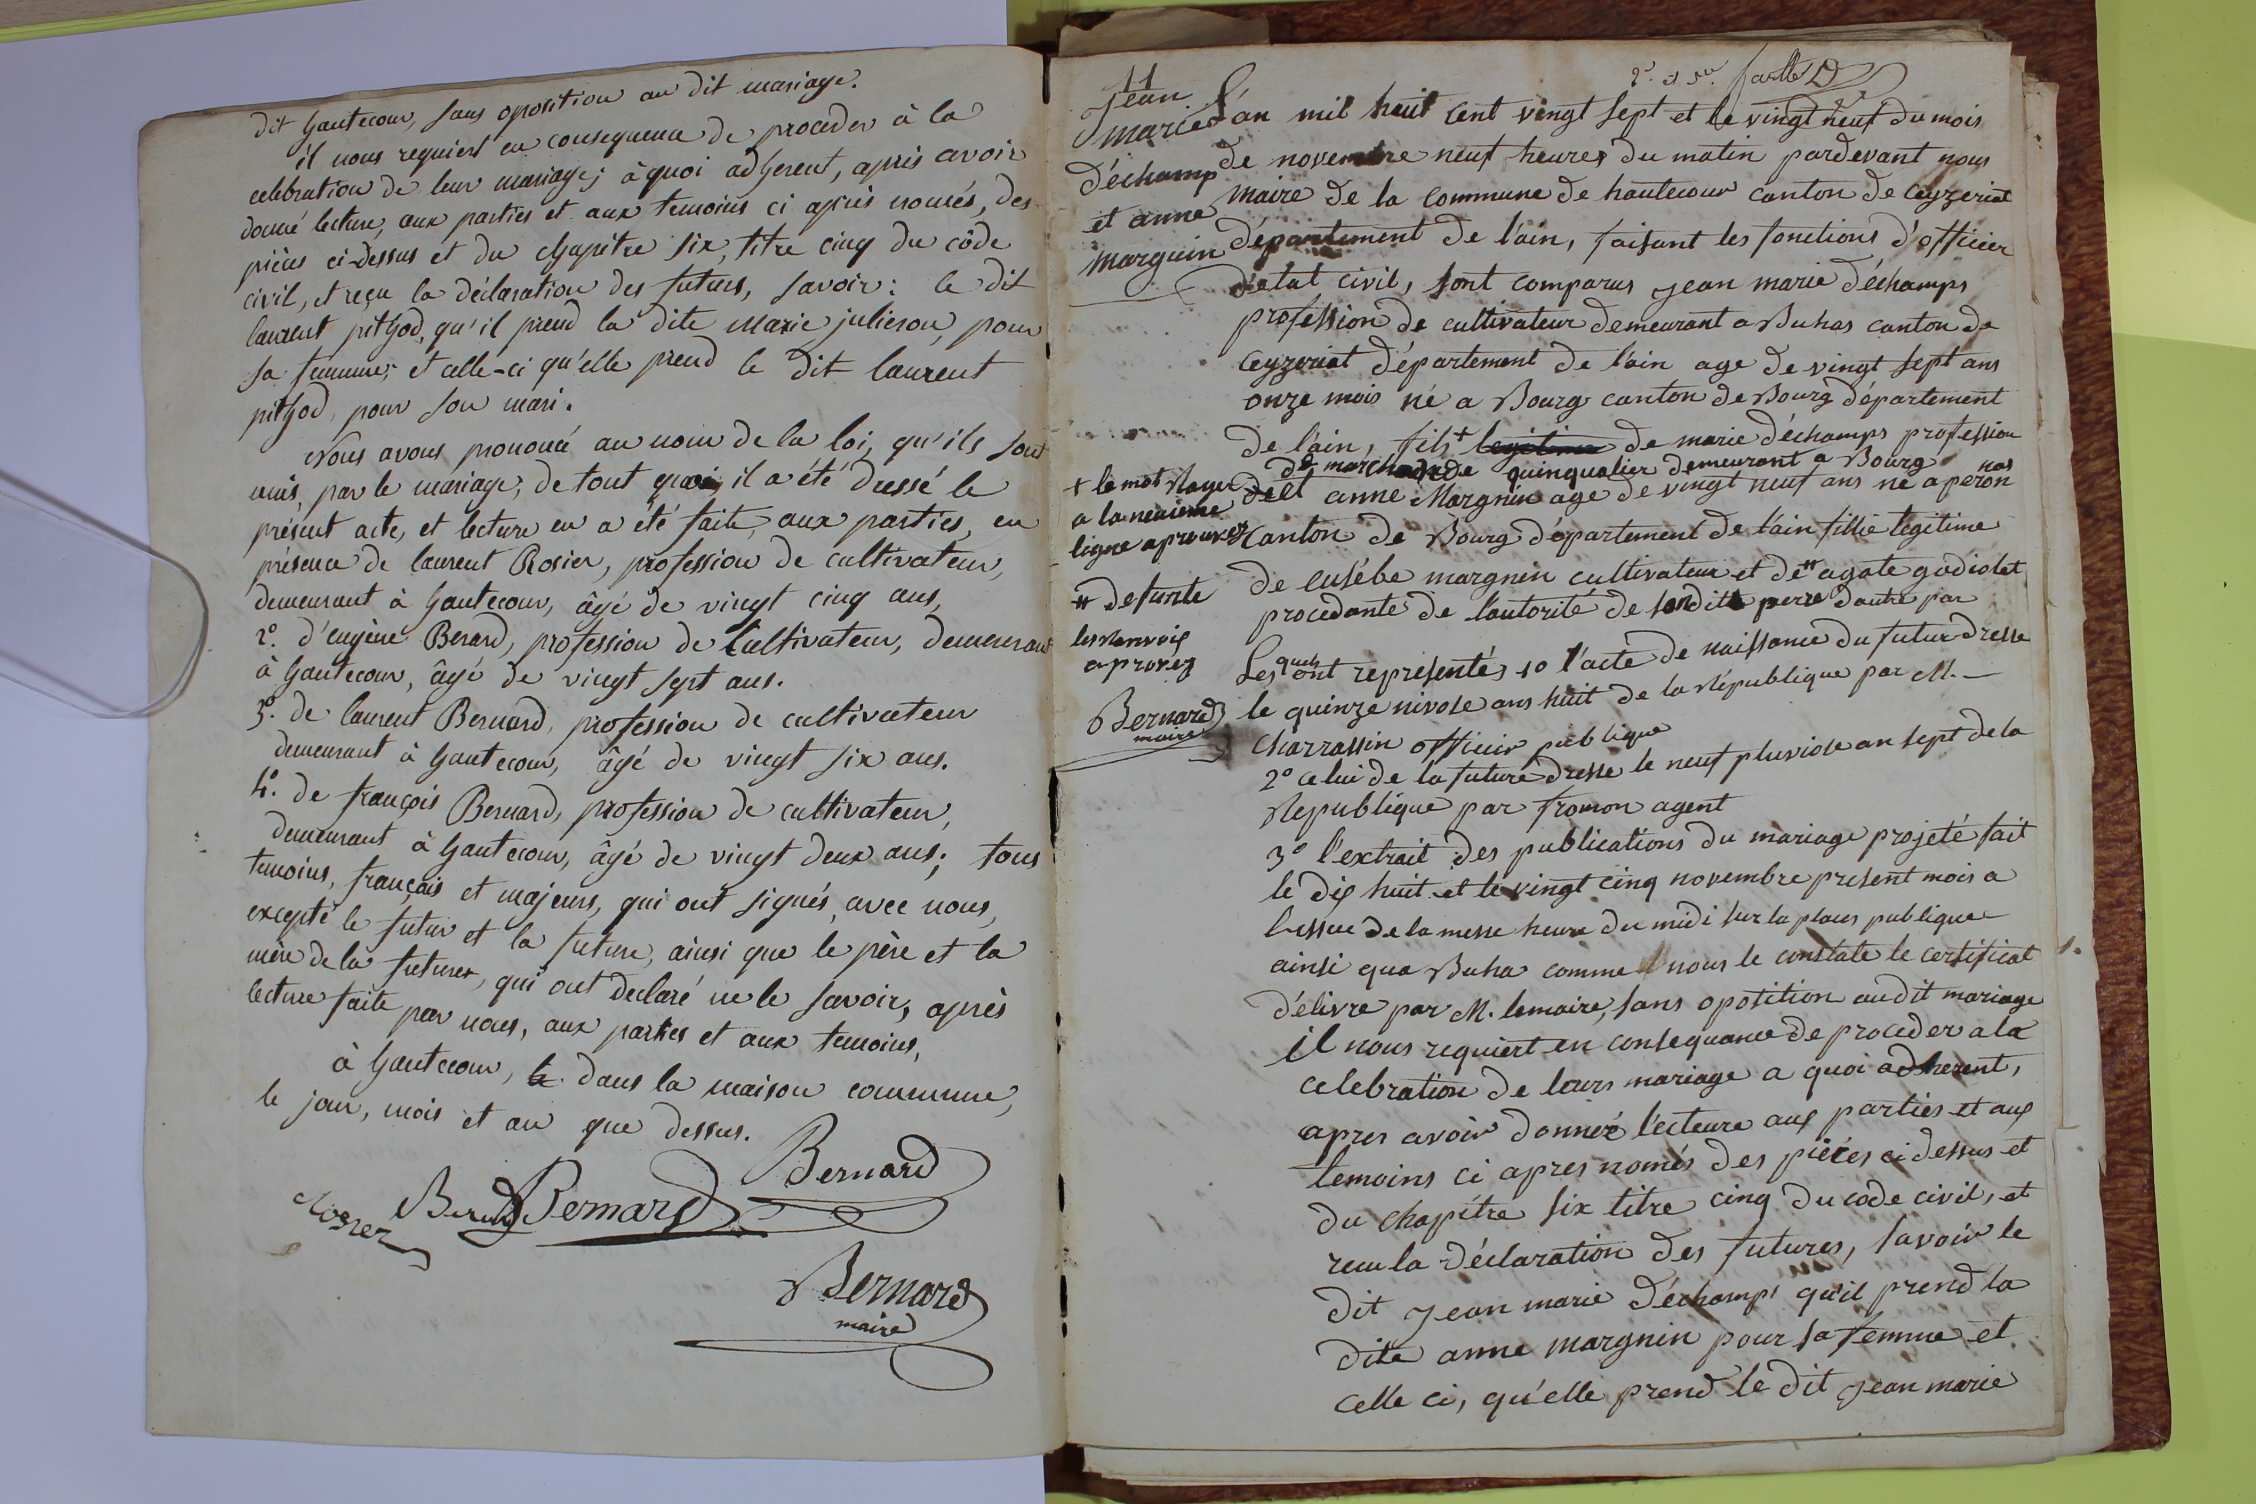 dit hautecour, sans oposition au dit mariage.
il nous requiert en consequence de proceder à la
celebration de leur mariage; à quoi adherent, après avoir
donné lecture, aux parties et aux temoins ci après només, des
pièces ci-dessus et du chapitre six, titre cinq du côde
civil, et reçu la déclaration des futurs, savoir: le dit
laurent pithod, qu'il prend la dite marie julieron, pour
sa femme; et celle-ci qu'elle prend le dit laurent
pithod, pour son mari.
Nous avons prononcé au nom de la loi, qu'ils sont
unis, par le mariage; de tout quoi, il a été dressé le
présent acte, et lecture en a été faite, aux parties, en
présence de laurent Rosier, profession de cultivateur,
demeurant à hautecour, âgé de vingt cinq ans,
2°. d'eugène Berard, profession de Cultivateur, demeurant
à hautecour, âgé de vingt sept ans.
3°. de laurent Bernard, profession de cultivateur
demeurant à hautecour, âgé de vingt six ans.
4°. de françois Bernard, profession de cultivateur,
demeurant à hautecour, âgé de vingt deux ans; tous
temoins, français et majeurs, qui ont signés, avec nous,
excepté le futur et la future, ainsi que le père et la
mère de la future, qui ont declaré ne le savoir, après
lecture faite par nous, aux parties et aux temoins,
à hautecour, dans la maison commune,
le jour, mois et an que dessus.
Bernard
Rosier
Bernard
Bernard
maire
11
Jean
marie
déchamp
et anne
marguin
L'an mil huit cent vingt sept et le vingt neuf du mois
de novembre neuf heures du matin pardevant nous
maire de la commune de hautecour canton de ceyzeriat
département de l'ain, faisant les fonctions d'officier
d'etat civil, sont comparus jean marie déchamps
profession de cultivateur demeurant a Buhas canton de
ceyzeriat département de l'ain age de vingt sept ans
onze mois né a Bourg canton de Bourg département
de l'ain, fils + legitime de marie déchamps profession
de marchande quinqualier demeurant a Bourg
et anne Margnin age de vingt neuf ans né a peronnas
canton de Bourg département de l'ain fillie legitime
de eusébe margnin cultivateur et de # agate godiolet
procedante de l'autorité de sondit perre d'autre par
Lesquels ont representés 1o l'acte de naissance du futur dresse
le quinze nivose ans huit de la République par M.
Charrassin officir publique
2° celui de la future dresse le neuf pluviose an sept de la
Republique par fromon agent
3° l'extrait des publications du mariage projeté fait
le dix huit et le vingt cinq novembre present mois a
lessue de la messe heure du midi sur la place publique
ainsi qua Buha comme nous le constate le certificat
délivre par M. lemaire, sans oposition audit mariage
il nous requiert en consequance de proceder a la
celebration de leurs mariage a quoi adherent,
apres avoir donneé lécteure aux parties et aux
temoins ci apres només des piéces ci dessus et
du chapitre six titre cinq du code civil, et
recu la déclaration des futures, savoir le
dit jean marie déchamps qu'il prend la
dite anne margnin pour sa femme et
celle ci, qu'elle prend le dit jean marie
+ le mot Rayer
a la neuieme
ligne aprouvez
# defunte
les Renvois
aprovez
Bernard
maire